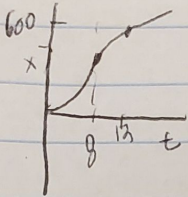 600
x
8 13 t